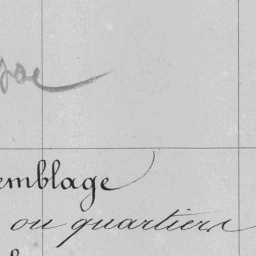 emblage
ou quartiers